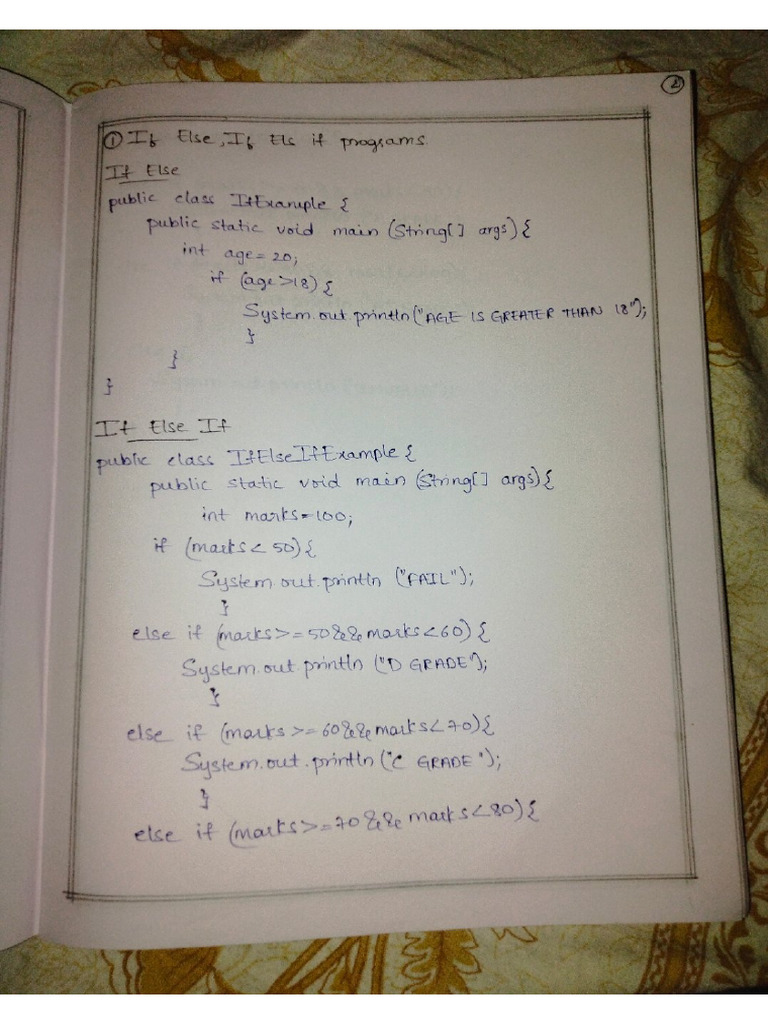 2
① If Else, If Els if programs
If Else
public class IfExample {
public static void main (String[] args) {
int age = 20;
if (age >18) {
System.out.println("AGE IS GREATER THAN 18");
}
}
}
If Else If
public class IfElseIfExample {
public static void main (String[] args) {
int marks=100;
if (marks < 50) {
System.out.println ("FAIL");
}
else if (marks >= 50 && marks < 60) {
System.out.println ("D GRADE");
}
else if (marks >= 60 && marks < 70) {
System.out.println ("C GRADE");
}
else if (marks >= 70 && marks < 80) {